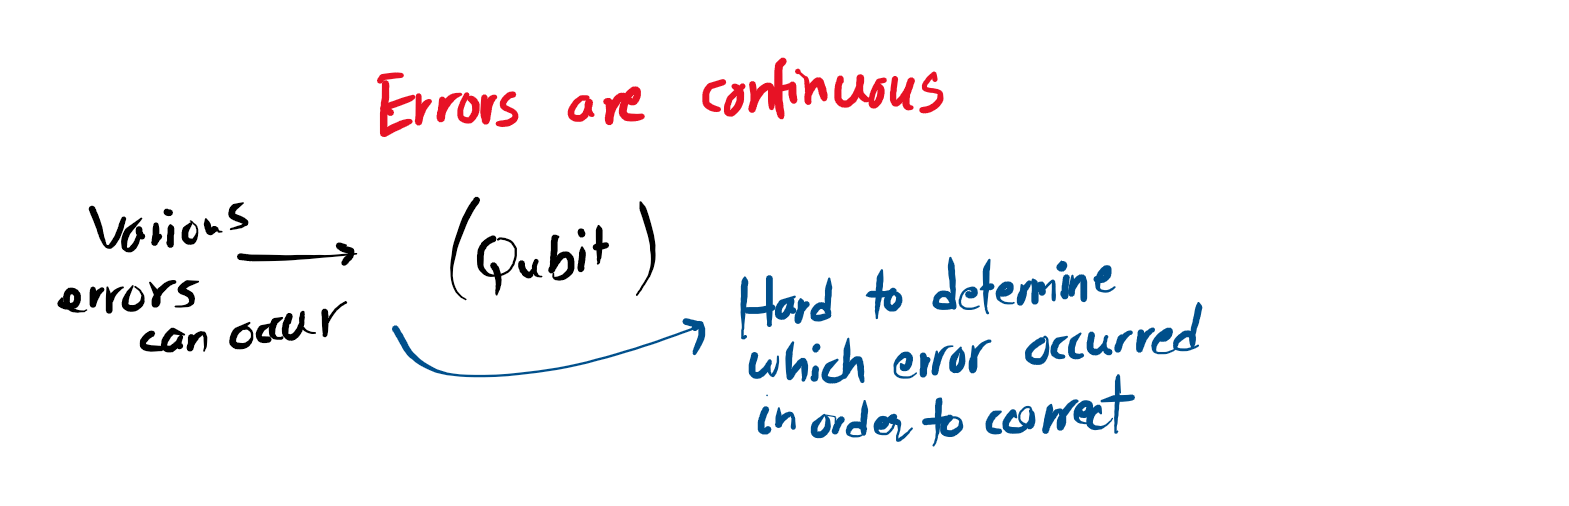 Errors are continuous
Various
errors
can occur
(Qubit)
Hard to determine
which error occurred
in order to correct